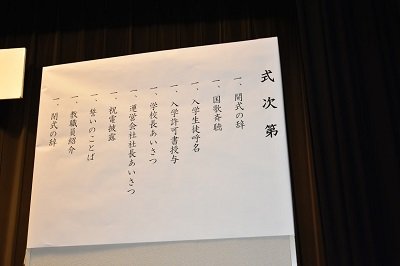 式次第
一、開式の辞
一、国歌斉聴
一、入学生徒呼名
一、入学許可書授与
一、学校長あいさつ
一、運営会社社長あいさつ
一、祝電披露
一、誓いのことば
一、教職員紹介
一、閉式の辞